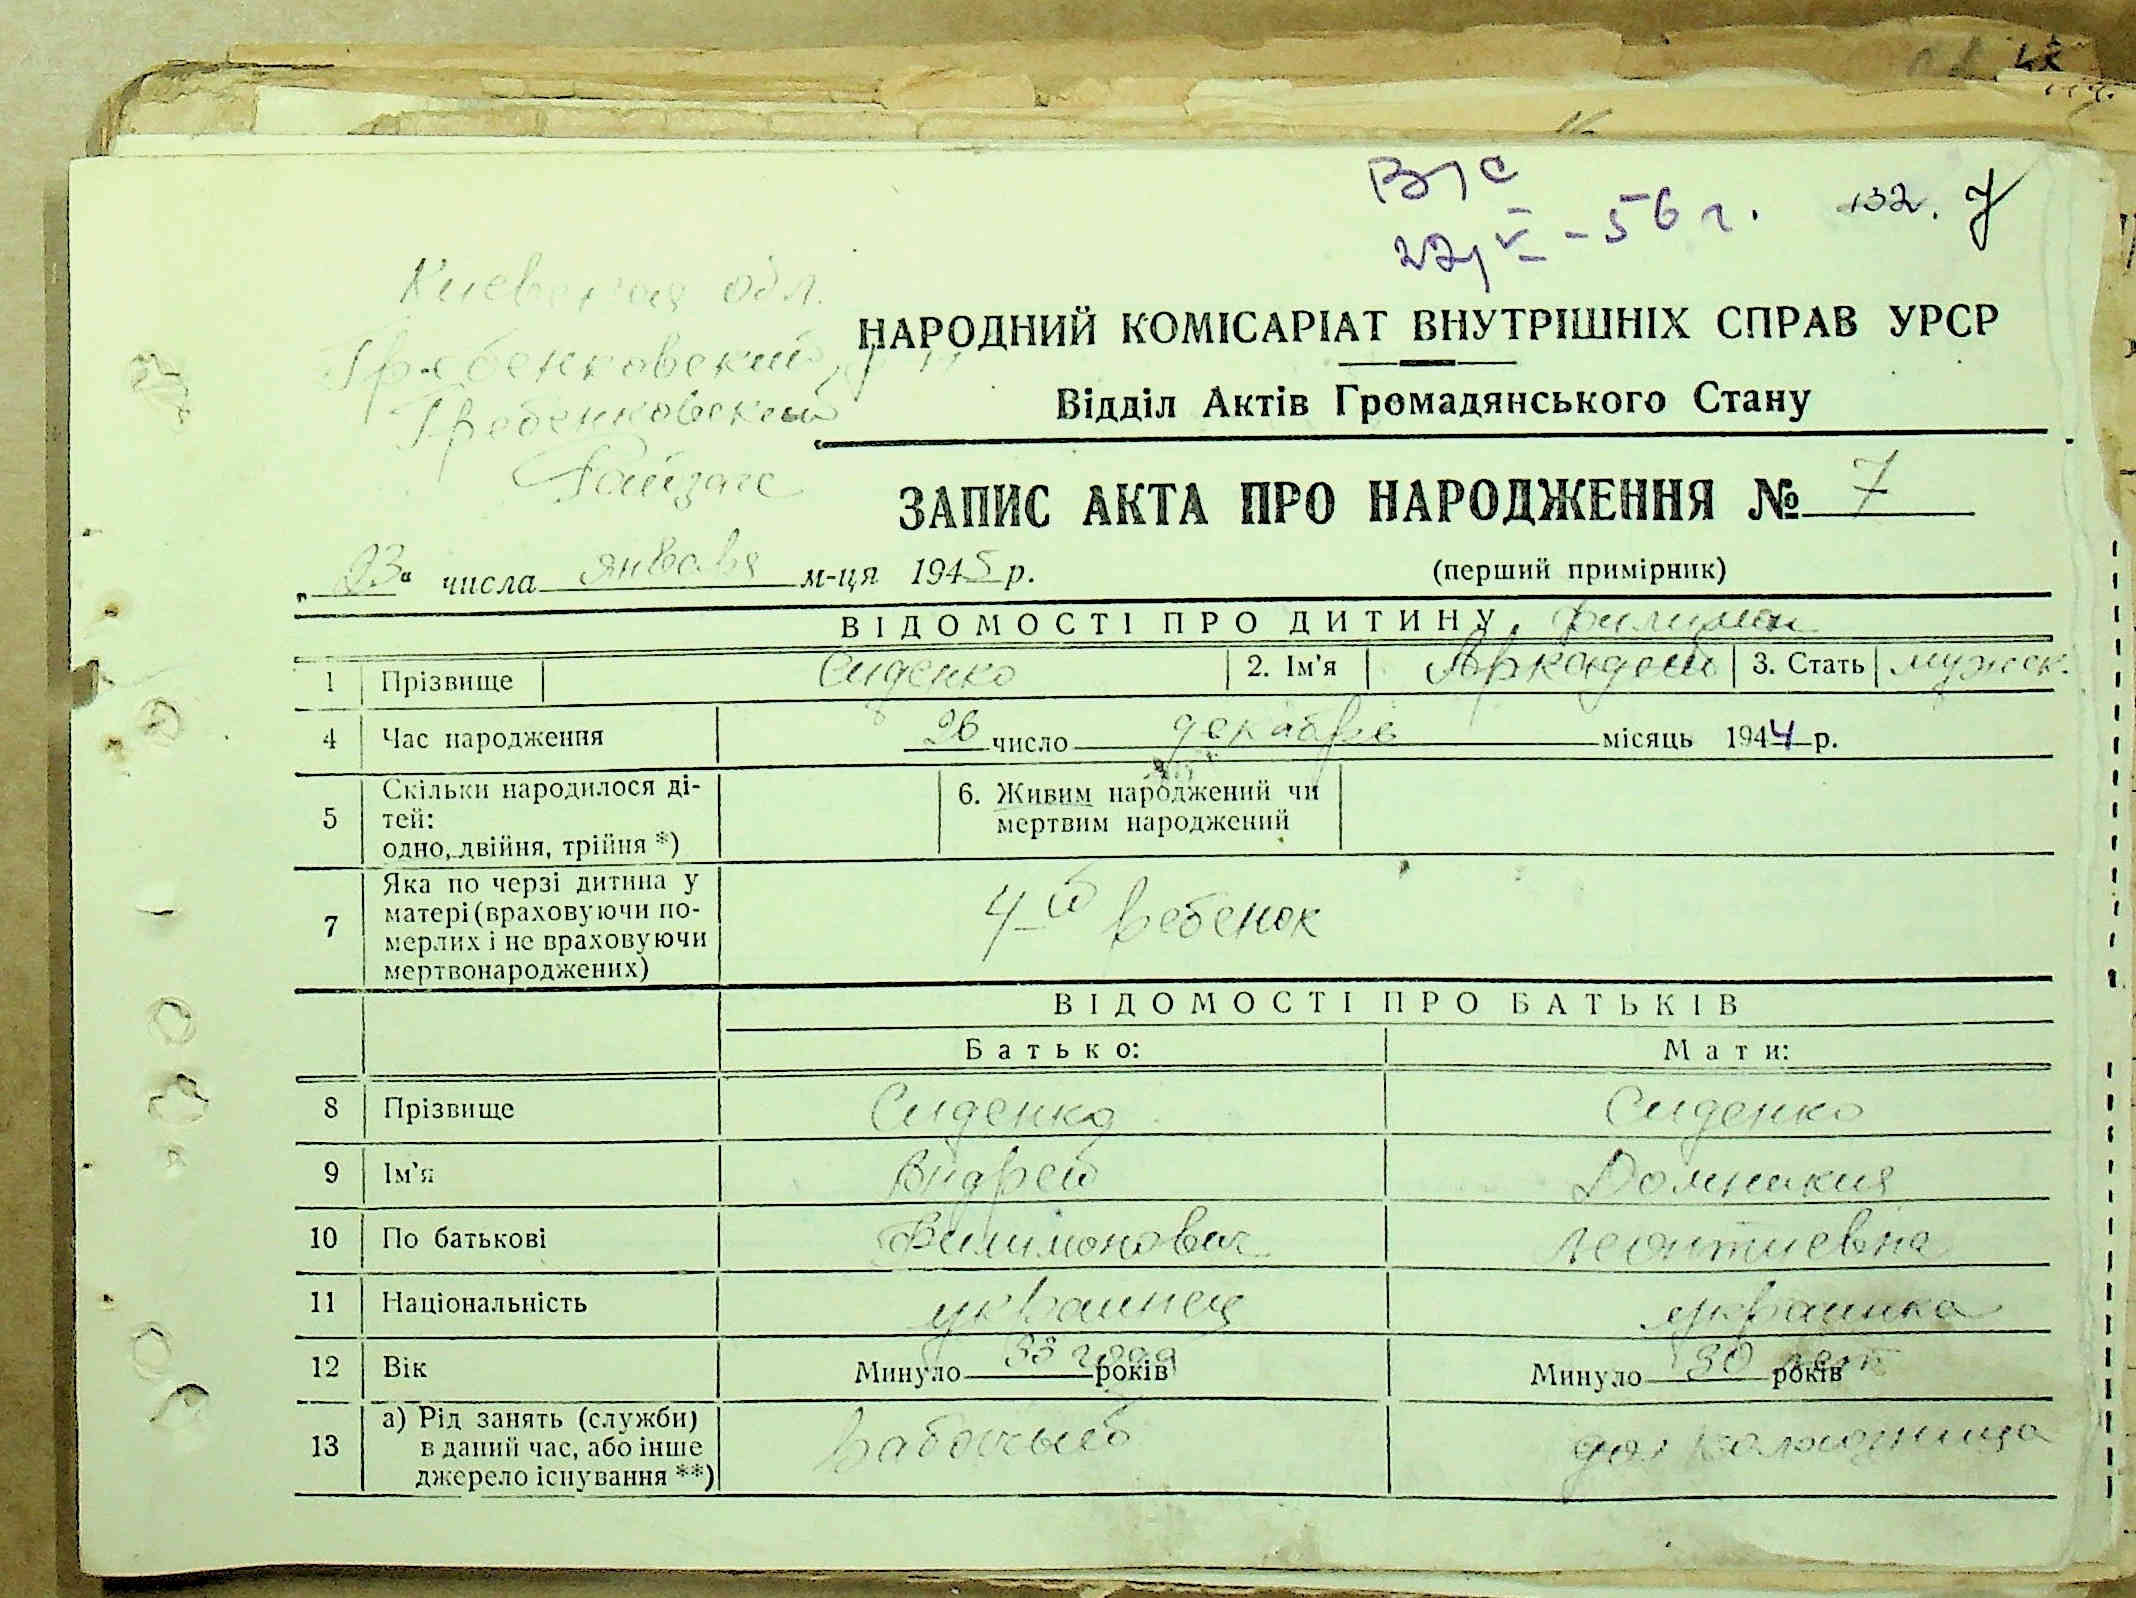 В/с
22/V-56 г.
132. 7
Киевская обл.
Гребенковский р-н
Гребенковский
Райзагс
НАРОДНИЙ КОМІСАРІАТ ВНУТРІШНІХ СПРАВ УРСР
Відділ Актів Громадянського Стану
ЗАПИС АКТА ПРО НАРОДЖЕННЯ № 7
(перший примірник)
„ 23 “ числа января м-ця 1945 р.
ВІДОМОСТІ ПРО ДИТИНУ
1 Прізвище Сиденко 2. Ім'я Аркадей 3. Стать мужск.
4 Час народження 26 число декабре місяць 1944 р.
5 Скільки народилося ді-
тей:
одно, двійня, трійня *)
6. Живим народжений чи
мертвим народжений
7 Яка по черзі дитина у
матері (враховуючи по-
мерлих і не враховуючи
мертвонароджених)
4-й ребенок
ВІДОМОСТІ ПРО БАТЬКІВ
Батько: Мати:
8 Прізвище Сиденко Сиденко
9 Ім'я Андрей Домникия
10 По батькові Филимонович Леонтиевна
11 Національність украинец украинка
12 Вік Минуло 33 года років Минуло 30 лет років
13 а) Рід занять (служби)
в даний час, або інше
джерело існування **)
рабочый